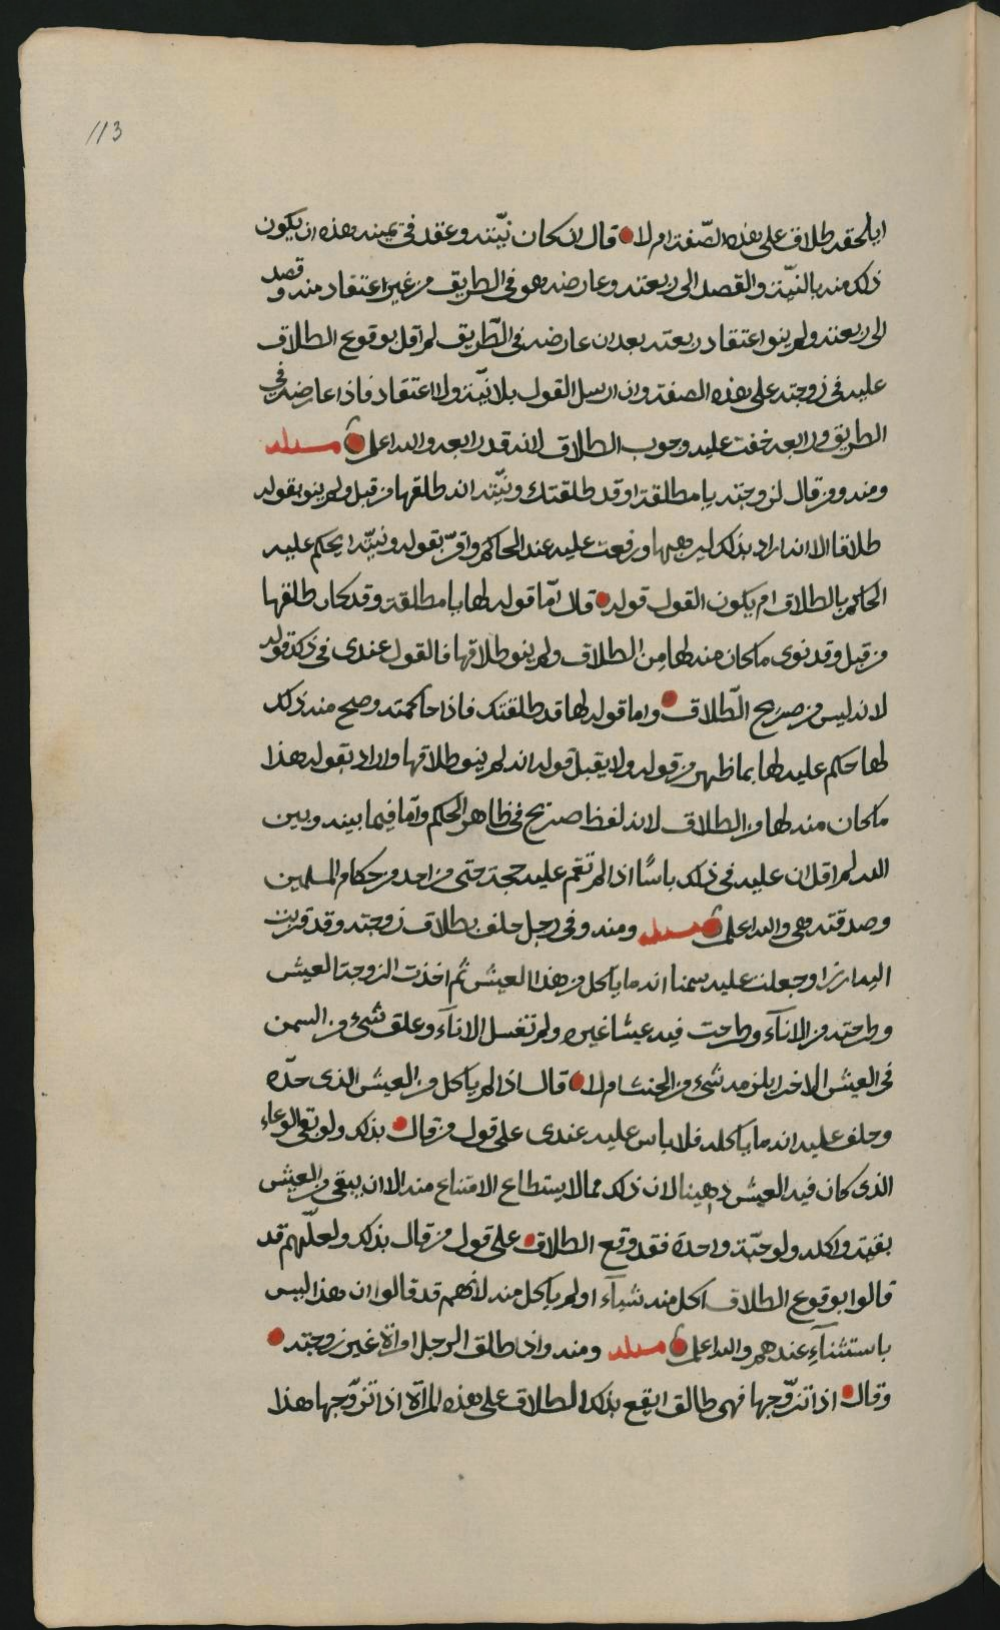 113
ايلحقه طلاق على هذه الصّفة ام لا قال ان كان نيّته وعقد في يمينه هذه ان يكون
ذلك منه بالنيّة والقصد الى ربعته وعارضه هو في الطريق من غير اعتقاد منه وقصد
الى ربعته ولم ينو اعتقاد ربعته بعد ان عارضه في الطّريق لم اقل بوقوع الطلاق
عليه في زوجته على هذه الصفة وان ارسل القول بلا نيّة ولا اعتقاد فاذا عارضه في
الطريق ورابعه خفت عليه وجوب الطلاق لانه قد رابعه والله اعلم مسئله
ومنه ومن قال لزوجته يا مطلقة او قد طلقتك ونيّته انه طلقها من قبل ولم ينو بقوله
طلاقا الا انه اراد بذلك ليرهبها ورفعت عليه عند الحاكم واقرّ بقوله ونيته ايحكم عليه
الحاكم بالطلاق ام يكون القول قوله قال امّا قوله لها يا مطلقة وقد كان طلقها
من قبل وقد نوى ما كان منه لها من الطلاق ولم ينو طلاقها فالقول عندى في ذلك قوله
لانه ليس من صريح الطّلاق واما قوله لها قد طلقتك فاذا حاكمته وصح منه ذلك
لها حكم عليه لها بما ظهر من قوله ولا يقبل قوله انه لم ينو طلاقها واراد بقوله هذا
ما كان منه لها من الطلاق لانه لفظ صريح في ظاهر الحكم وامّا فيما بينه وبين
الله لم اقل ان عليه في ذلك باسًا اذا لم تقم عليه حجة حتى من احد من حكام المسلمين
وصدقته هي والله اعلم مسئله ومنه وفي رجل حلف بطلاق زوجته وقد قربت
اليه ارزا وجعلت عليه سمنا انه ما ياكل من هذا العيش ثم اخذت الزوجة العيش
وطرحته من الاناء وطرحت فيه عيشا غيره ولم تغسل الاناء وعلق شئ من السمن
في العيش الاخر ايلزمه شئ من الحنث ام لا قال اذا لم ياكل من العيش الذى حدّه
وحلف عليه انه ما ياكله فلا باس عليه عندى على قول من قال بذلك ولو بقى الوعاء
الذى كان فيه العيش دهينا لان ذلك مما لا يستطاع الامتناع منه الا ان يبقى من العيش
بقية واكله ولو حبّة واحدة فقد وقع الطلاق على قول من قال بذلك ولعلّهم قد
قالوا بوقوع الطلاق اكل منه شيآء او لم ياكل منه لانهم قد قالوا ان هذا ليس
باستثنآء عندهم والله اعلم مسئله ومنه واذا طلق الرجل امراة غير زوجته
وقال اذا تزوّجها فهى طالق ايقع بذلك الطلاق على هذه المراة اذا تزوّجها هذا